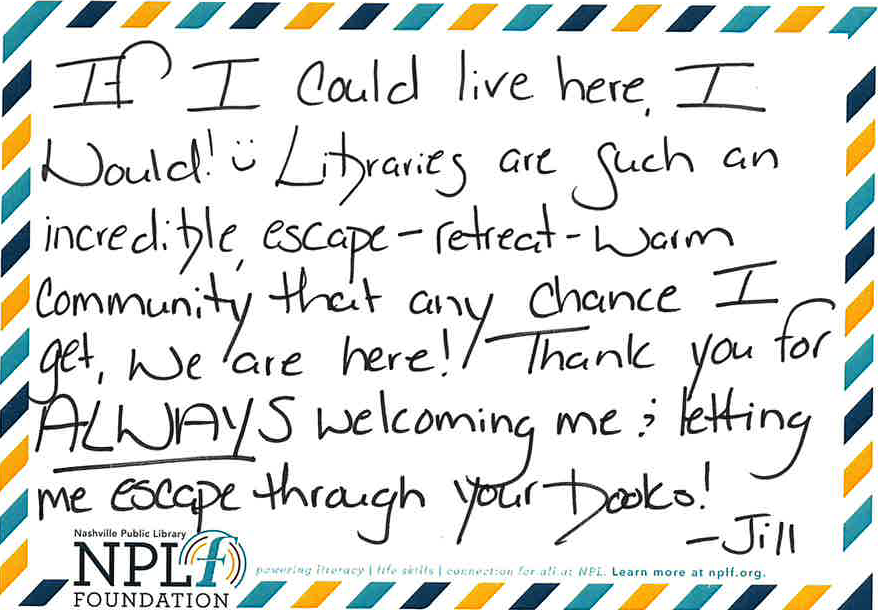 If I Could live here, I
Would! ü Libraries are such an
incredible, escape-retreat-warm
Community that any chance I
get, We are here! Thank you for
ALWAYS welcoming me & letting
me escape through your books!
-Jill
Nashville Public Library
NPLf
FOUNDATION
powering literacy | life skills | connection for all at NPL. Learn more at nplf.org.